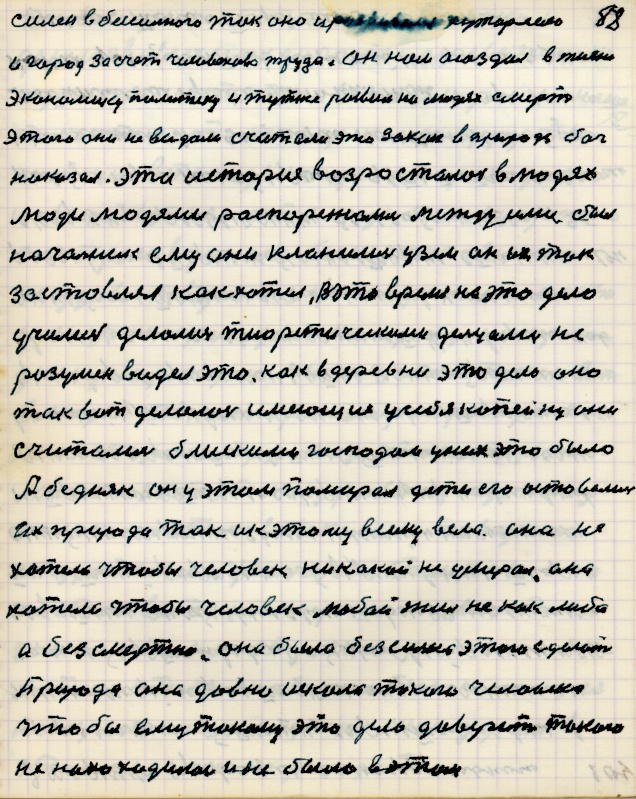 силен в бессилного так оно хутарлело 88
и город засчет человеково труда. он нам создал в жизни
экономику политику и тутже развил на людях смерть
этого они не видали считали это закон в природе бог
наказал. эти история возросталов в людях
люди людями распорежами между ими был
началник ему они кланилис узем он их так
застовлял какхотел, В это время на это дело
училис делолис тиоретическими делцами не
розумен видел это. как вдеревни это дело оно
так вот делалос имеющие усебя копейку они
считалис близкими господам уних это было
А бедняк он у этом помирал дети его оставалис
Их природа так ик этому всему вела. она не
хотела чтобы человек никакой не умирал. она
хотела чтобы человек любой жил не как либа
а безсмертно. она была безсилна этого сделат
Природа она давно искала такого человека
чтобы ему такому это дело доверит такого
не нахо ходилос и не было в этом